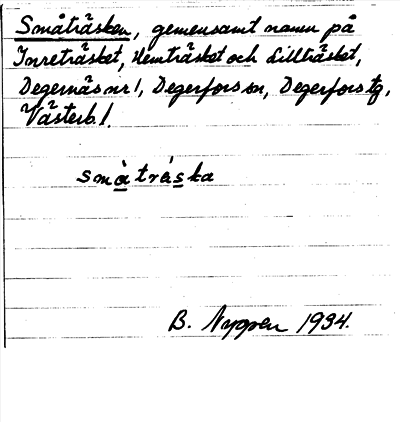 Småträsken, gemensamt namn på
Inreträsket, Hemträsket och Lillträsket,
Degernäs nr 1, Degerfors sn, Degerfors tg,
Västerb. l.
småtráska
B. Nygren 1934.